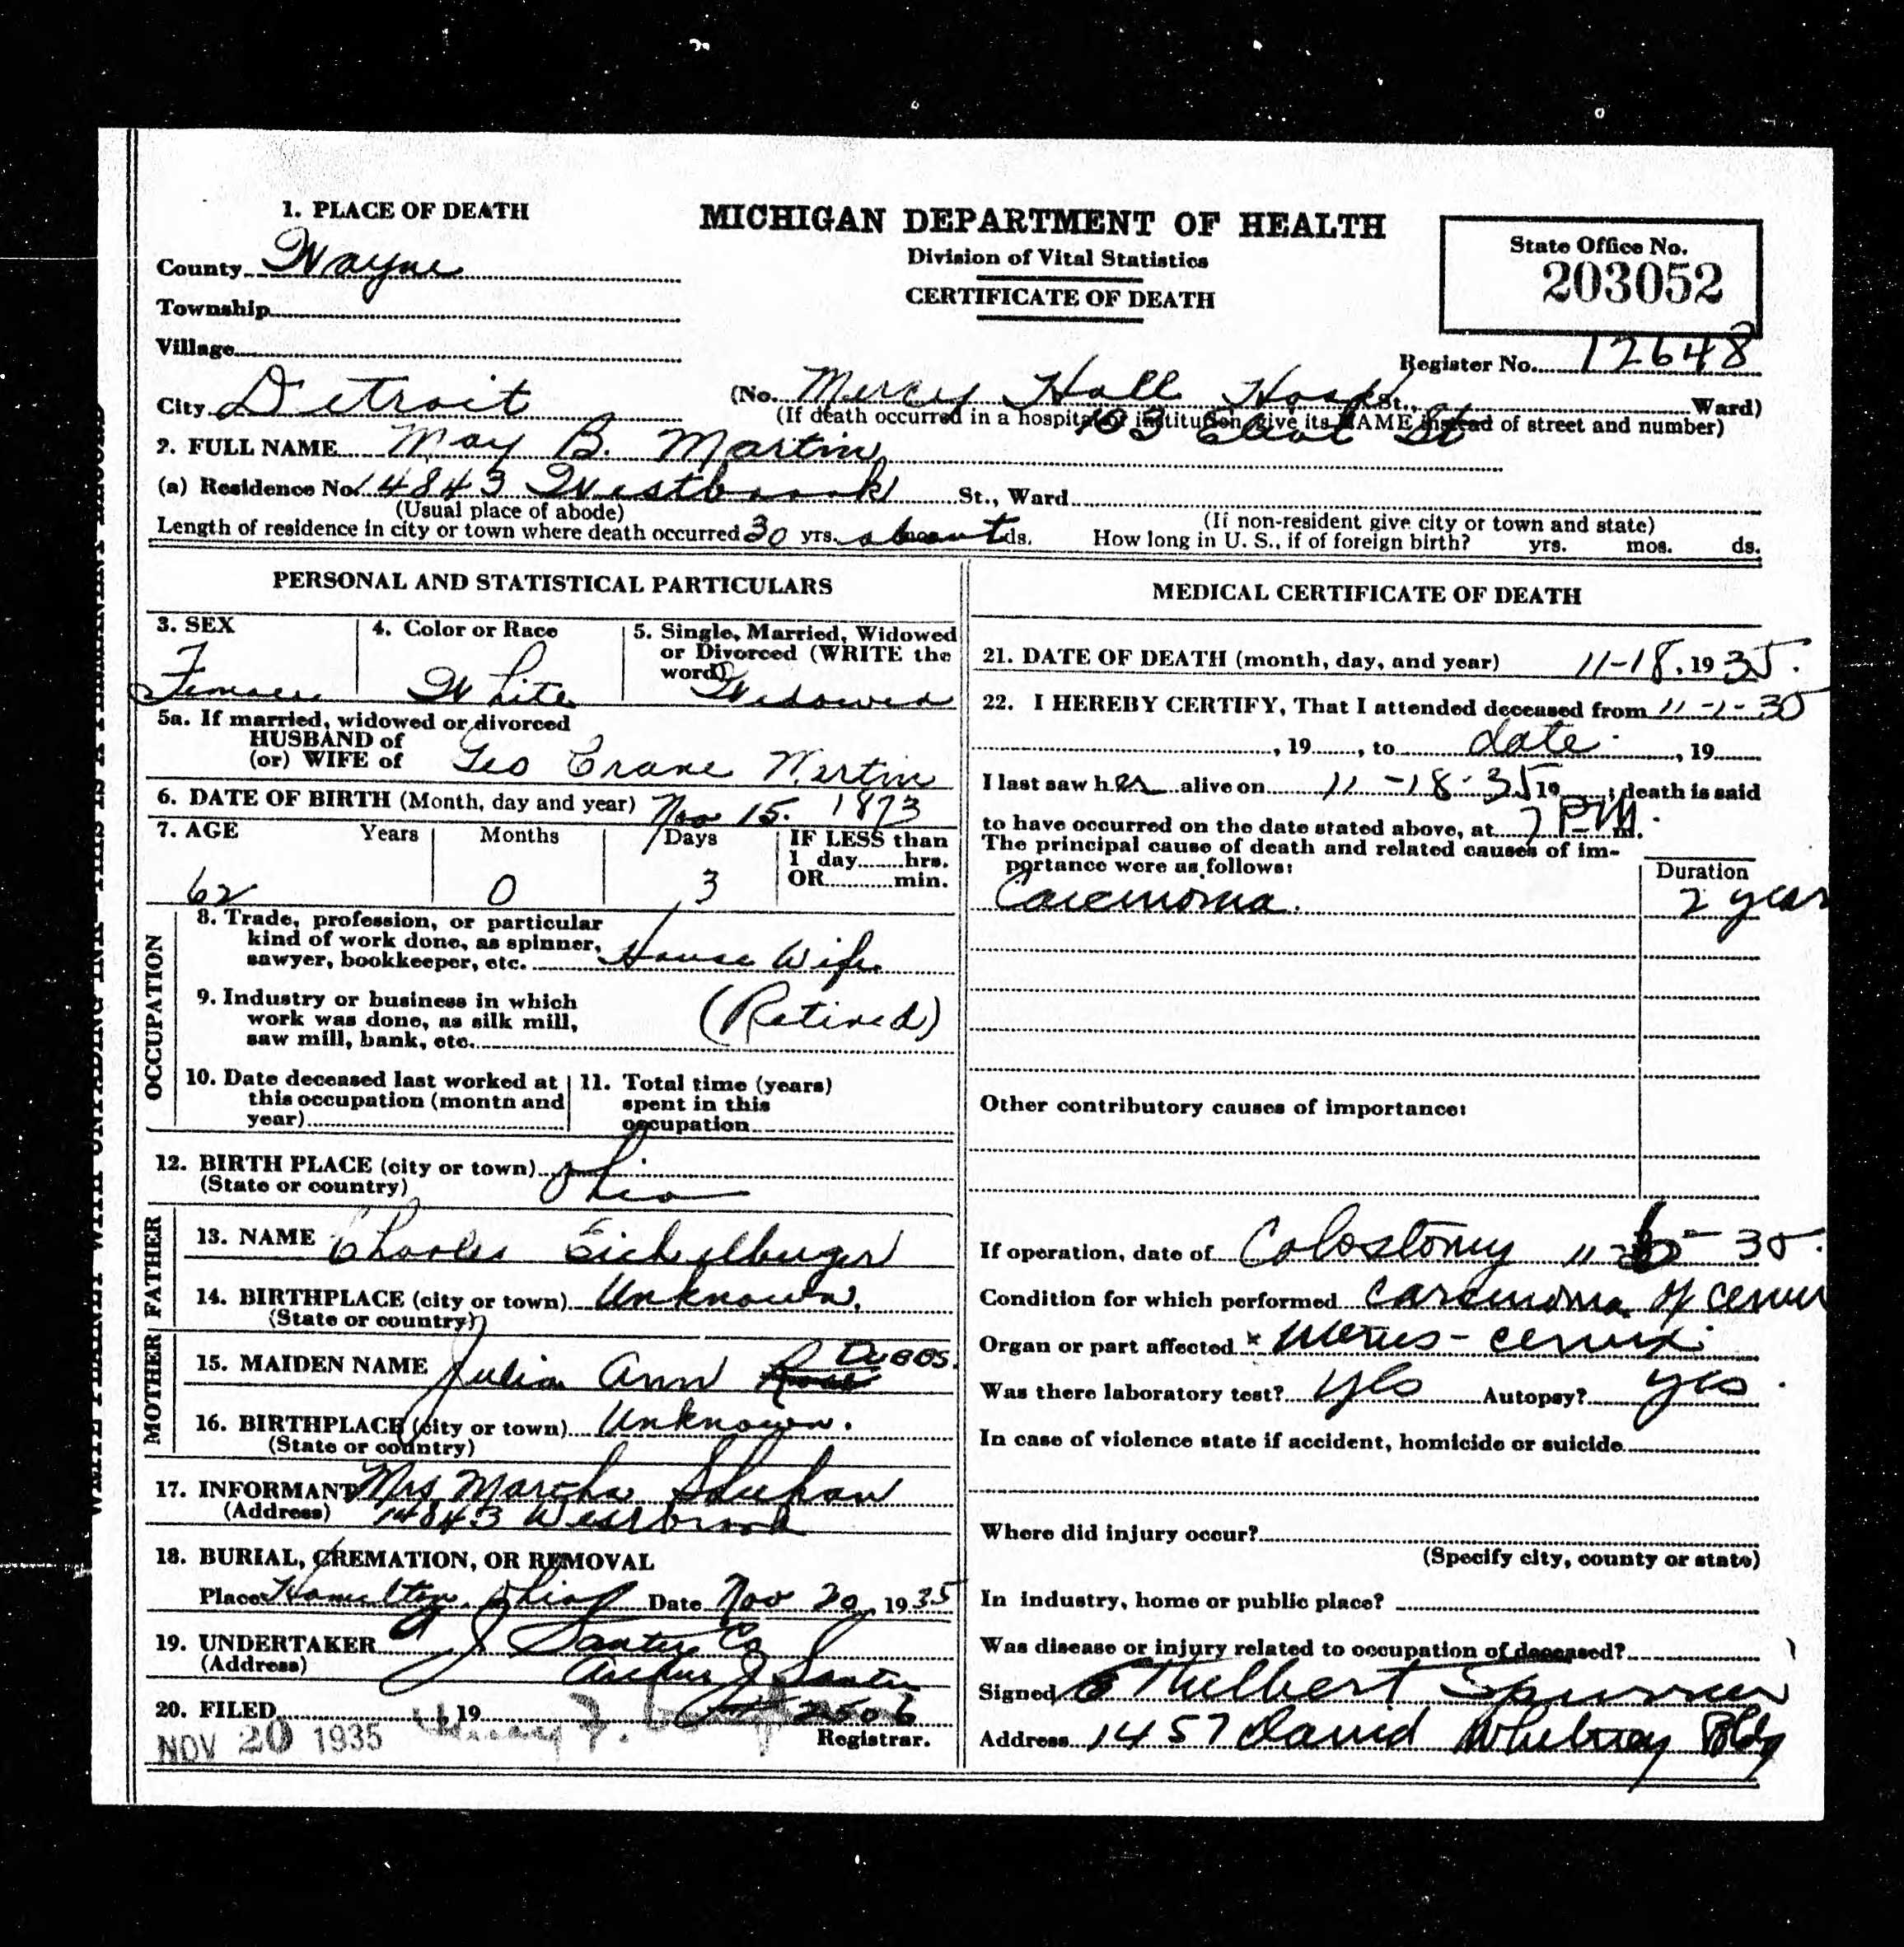 1. PLACE OF DEATH
MICHIGAN DEPARTMENT OF HEALTH
Division of Vital Statistics
CERTIFICATE OF DEATH
State Office No.
203052
County Wayne
Township
Village
Register No. 12648
City Detroit (No. Mercy Hall Hosp St., Ward)
(If death occurred in a hospital or institution, give its NAME instead of street and number)
103 Eliot St
2. FULL NAME May B. Martin
(a) Residence No. 14843 Westbrook St., Ward
(Usual place of abode) (If non-resident give city or town and state)
Length of residence in city or town where death occurred 30 yrs. about ds. How long in U. S., if of foreign birth? yrs. mos. ds.
PERSONAL AND STATISTICAL PARTICULARS
3. SEX 4. Color or Race 5. Single, Married, Widowed or Divorced (WRITE the word)
Female White Widowed
5a. If married, widowed or divorced
HUSBAND of
(or) WIFE of Geo Crane Martin
6. DATE OF BIRTH (Month, day and year) Nov 15. 1873
7. AGE Years Months Days IF LESS than
1 day hrs.
OR min.
62 0 3
OCCUPATION
8. Trade, profession, or particular
kind of work done, as spinner,
sawyer, bookkeeper, etc. House Wife
9. Industry or business in which
work was done, as silk mill,
saw mill, bank, etc. (Retired)
10. Date deceased last worked at
this occupation (month and
year)
11. Total time (years)
spent in this
occupation
12. BIRTH PLACE (city or town)
(State or country) Ohio
FATHER
13. NAME Charles Eichelberger
14. BIRTHPLACE (city or town) Unknown.
(State or country)
MOTHER
15. MAIDEN NAME Julia Ann Dubbs.
16. BIRTHPLACE (city or town) Unknown.
(State or country)
17. INFORMANT Mrs Marcha Sheehan
(Address) 14843 Westbrook
18. BURIAL, CREMATION, OR REMOVAL
Place Hamilton, Ohio Date Nov 20, 1935
19. UNDERTAKER A J Santer Co
(Address) Arthur J Santer
20. FILED 19 2506
NOV 20 1935 Registrar.
MEDICAL CERTIFICATE OF DEATH
21. DATE OF DEATH (month, day, and year) 11-18, 1935.
22. I HEREBY CERTIFY, That I attended deceased from 11-1-35
, 19 , to date , 19
I last saw her alive on 11-18-35 19 ; death is said
to have occurred on the date stated above, at 7 PM m.
The principal cause of death and related causes of im-
portance were as follows:
Duration
Carcinoma. 2 year
Other contributory causes of importance:
If operation, date of Colostomy 11- -35.
Condition for which performed Carcinoma of cervix
Organ or part affected Uterus - cervix.
Was there laboratory test? Yes Autopsy? Yes.
In case of violence state if accident, homicide or suicide
Where did injury occur?
(Specify city, county or state)
In industry, home or public place?
Was disease or injury related to occupation of deceased?
Signed Ethelbert Spurrier
Address 1457 David Whitney Bldg